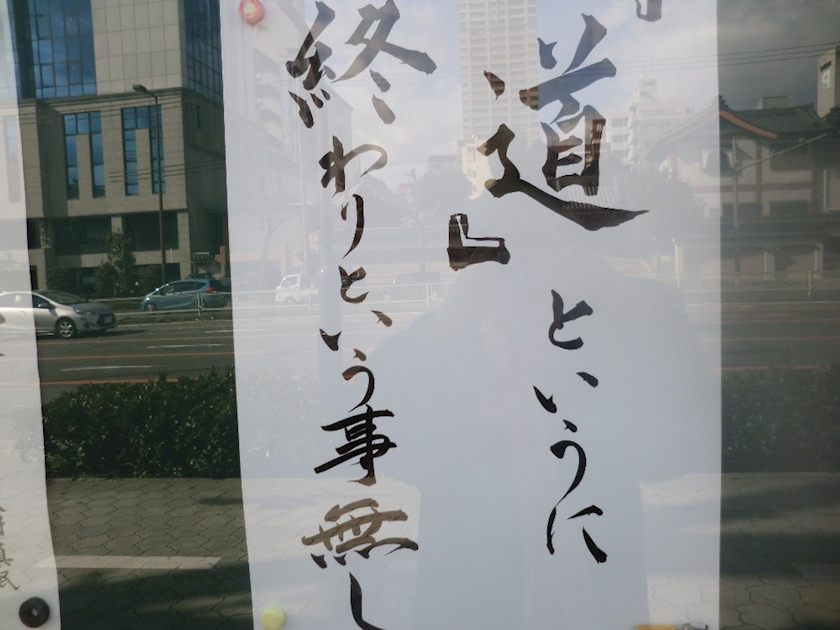 『道』というに
終わりという事無し
真民